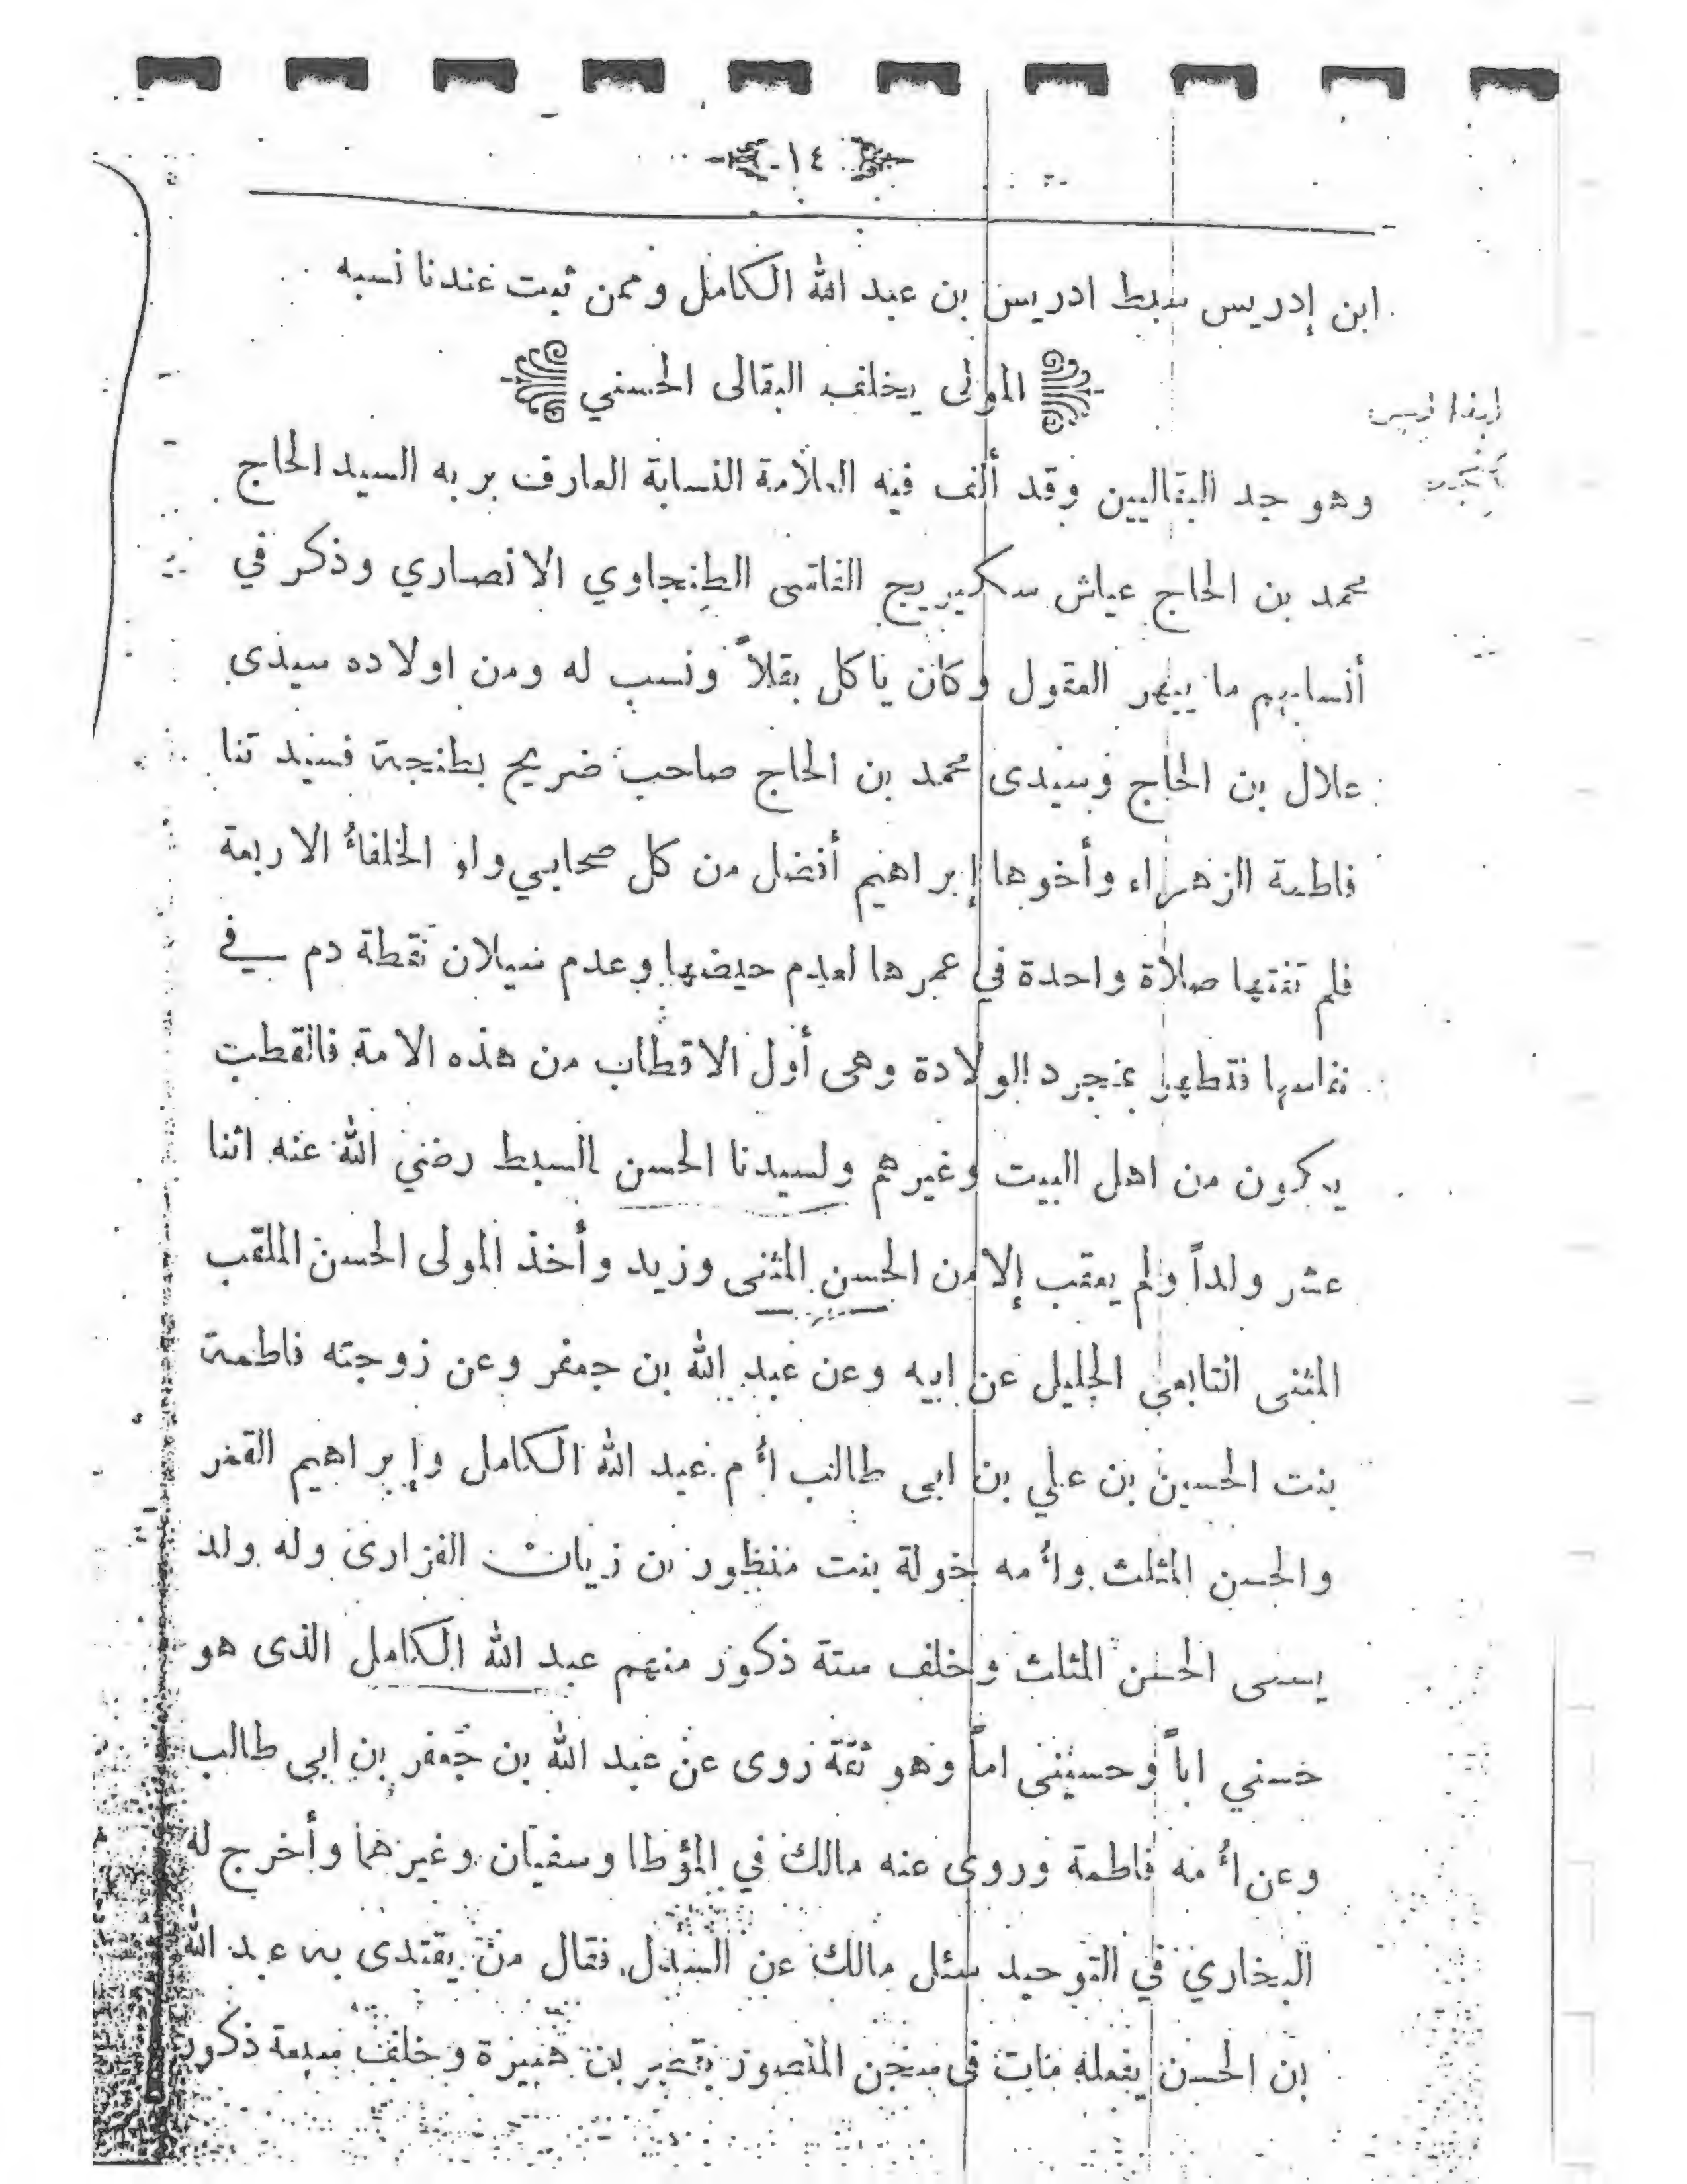 ١٤
ابن إدريس سبط ادريس بن عبد الله الكامل وممن ثبت عندنا نسبه
المولى يخلف البقالى الحسني
وهو جد البقاليين وقد ألف فيه العلامة النسابة العارف بربه السيد الحاج
محمد بن الحاج عياش سكيريج الفاسى الطنجاوي الانصاري وذكر في
أنسابهم ما يبهر العقول وكان ياكل بقلاً ونسب له ومن اولاده سيدى
علال بن الحاج وسيدى محمد بن الحاج صاحب ضريح بطنجة فسيد تنا
فاطمة الزهراء وأخوها إبراهيم أفضل من كل صحابي ولو الخلفاء الاربعة
فلم تفتها صلاة واحدة في عمرها لعدم حيضها وعدم سيلان نقطة دم في
نفاسها فتطهر بمجرد الولادة وهى أول الاقطاب من هذه الامة فالقطب
يكون من اهل البيت وغيرهم ولسيدنا الحسن السبط رضي الله عنه اثنا
عشر ولداً ولم يعقب إلا من الحسن المثنى وزيد وأخذ المولى الحسن الملقب
المثنى التابعي الجليل عن ابيه وعن عبد الله بن جعفر وعن زوجته فاطمة
بنت الحسين بن علي بن ابى طالب أم عبد الله الكامل وإبراهيم القمر
والحسن المثلث وأمه خولة بنت منظور بن زيان الفزارى وله ولد
يسمى الحسن المثلث وخلف ستة ذكور منهم عبد الله الكامل الذى هو
حسني اباً وحسينى اماً وهو ثقة روى عن عبد الله بن جعفر بن ابى طالب
وعن أمه فاطمة وروى عنه مالك في المؤطا وسفيان وغيرهما وأخرج له
البخاري في التوحيد سئل مالك عن السدل فقال من يقتدى به عبد الله
بن الحسن يفعله مات فى سجن المنصور بقصر بن هبيرة وخلف سبعة ذكور